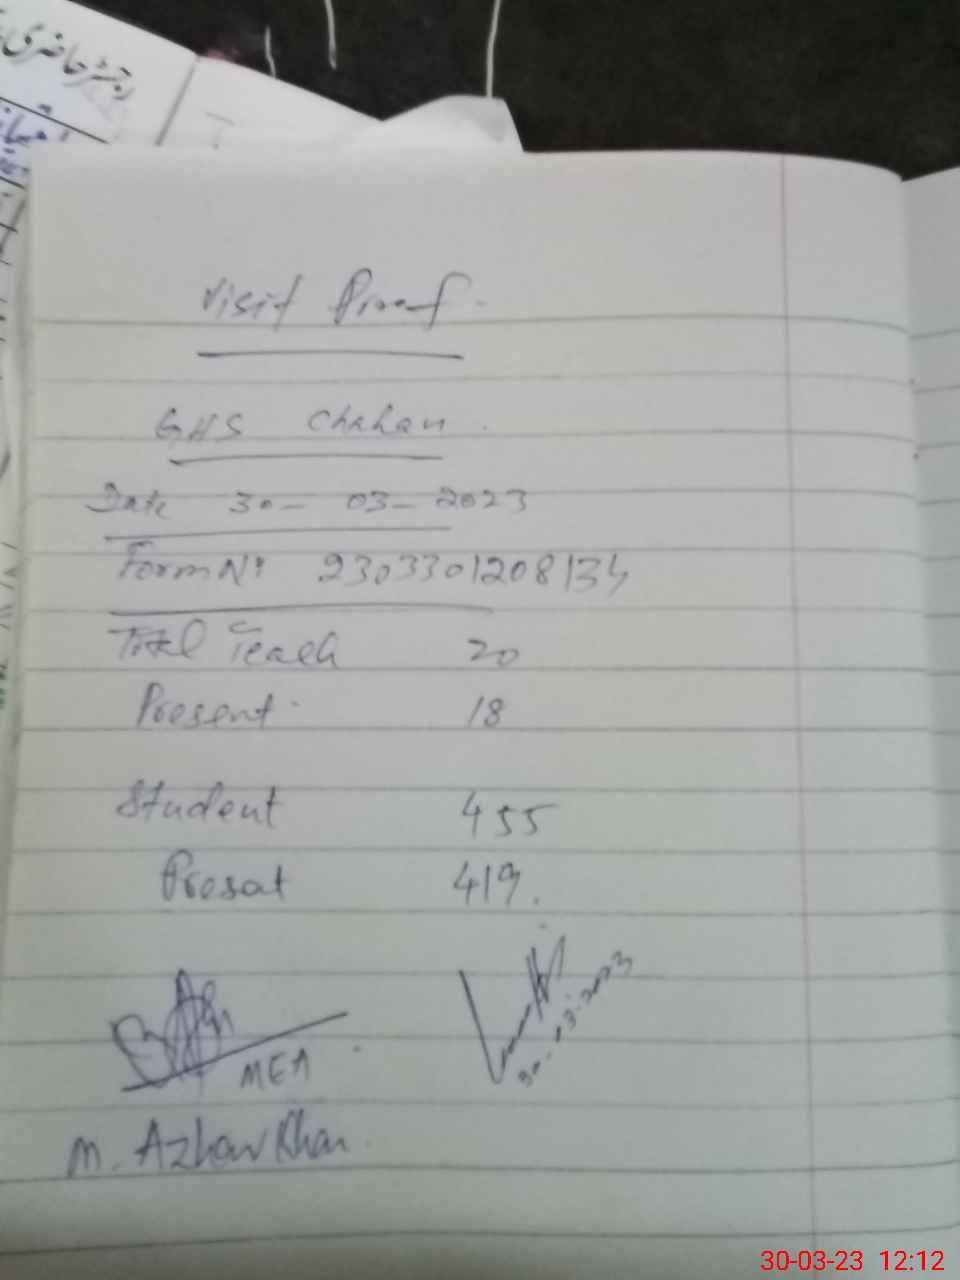 دفتر حاضری
Visit Proof.
GHS Chahan.
Date 30-03-2023
Form No 2303301208134
Total Teach 20
Present. 18
Student 455
Presat 419.
30-03-2023
MEA
M. Azhar Khan.
30-03-23 12:12